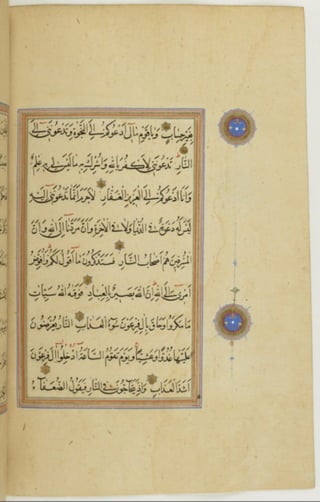 بِغَيْرِ حِسَابٍ وَيَا قَوْمِ مَا لِي أَدْعُوكُمْ إِلَى النَّجٰوةِ وَتَدْعُونَنِي إِلَى
النَّارِ تَدْعُونَنِي لِأَكْفُرَ بِاللهِ وَأُشْرِكَ بِهِ مَا لَيْسَ لِي بِهِ عِلْمٌ
وَأَنَا أَدْعُوكُمْ إِلَى الْعَزِيزِ الْغَفَّارِ لَا جَرَمَ أَنَّمَا تَدْعُونَنِي إِلَيْهِ
لَيْسَ لَهُ دَعْوَةٌ فِي الدُّنْيَا وَلَا فِي الْآخِرَةِ وَأَنَّ مَرَدَّنَا إِلَى اللهِ وَأَنَّ
الْمُسْرِفِينَ هُمْ أَصْحَابُ النَّارِ فَسَتَذْكُرُونَ مَا أَقُولُ لَكُمْ وَأُفَوِّضُ
أَمْرِي إِلَى اللهِ إِنَّ اللهَ بَصِيرٌ بِالْعِبَادِ فَوَقٰيهُ اللهُ سَيِّئَاتِ
مَا مَكَرُوا وَحَاقَ بِآلِ فِرْعَوْنَ سُوءُ الْعَذَابِ النَّارُ يُعْرَضُونَ
عَلَيْهَا غُدُوًّا وَعَشِيًّا وَيَوْمَ تَقُومُ السَّاعَةُ أَدْخِلُوا آلَ فِرْعَوْنَ
أَشَدَّ الْعَذَابِ وَإِذْ يَتَحَاجُّونَ فِي النَّارِ فَيَقُولُ الضُّعَفَاءُ